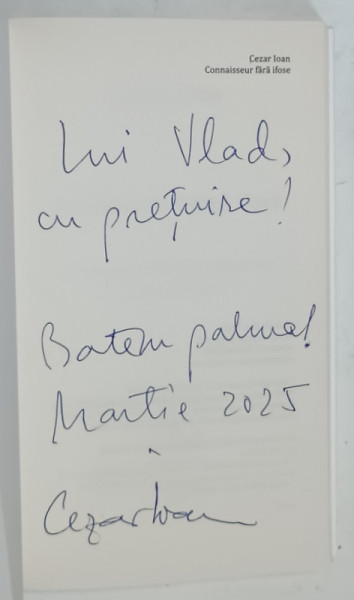 Cezar Ioan
Connaisseur fără ifose
Lui Vlad,
cu prețuire!
Batem palma!
Martie 2025
Cezar Ioan